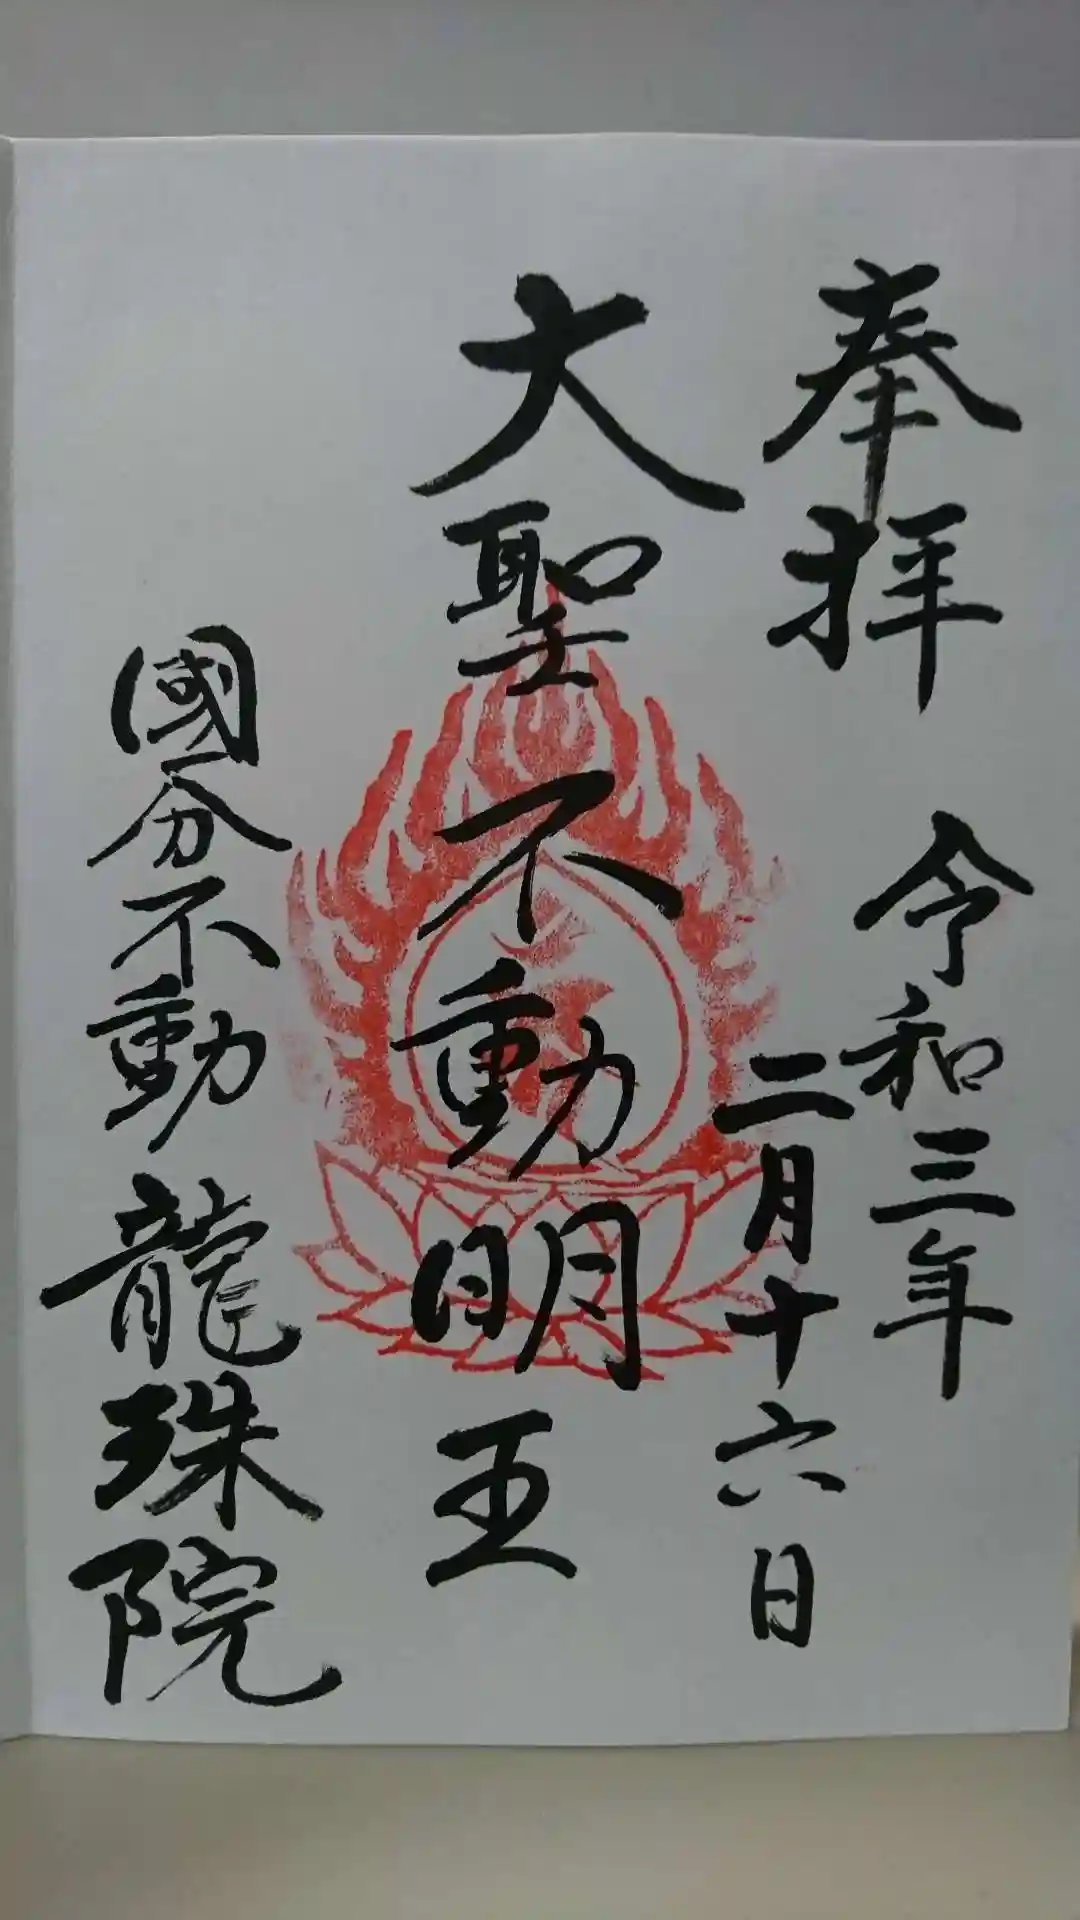 奉拝
令和三年
二月十六日
大聖不動明王
國分不動龍珠院